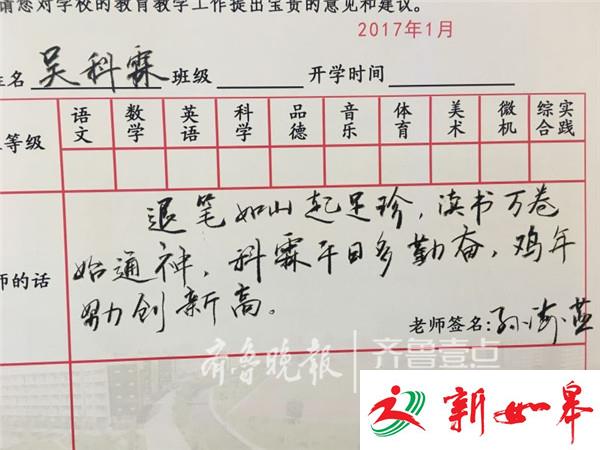 请您对学校的教育教学工作提出宝贵的意见和建议。
2017年1月
姓名 吴科霖 班级 开学时间
等级 语文 数学 英语 科学 品德 音乐 体育 美术 微机 综合实践
退笔如山起足珍,读书万卷
师的话 始通神,科霖平日多勤奋,鸡年
努力创新高。
老师签名:孙海燕
齐鲁晚报 齐鲁壹点
新如皋